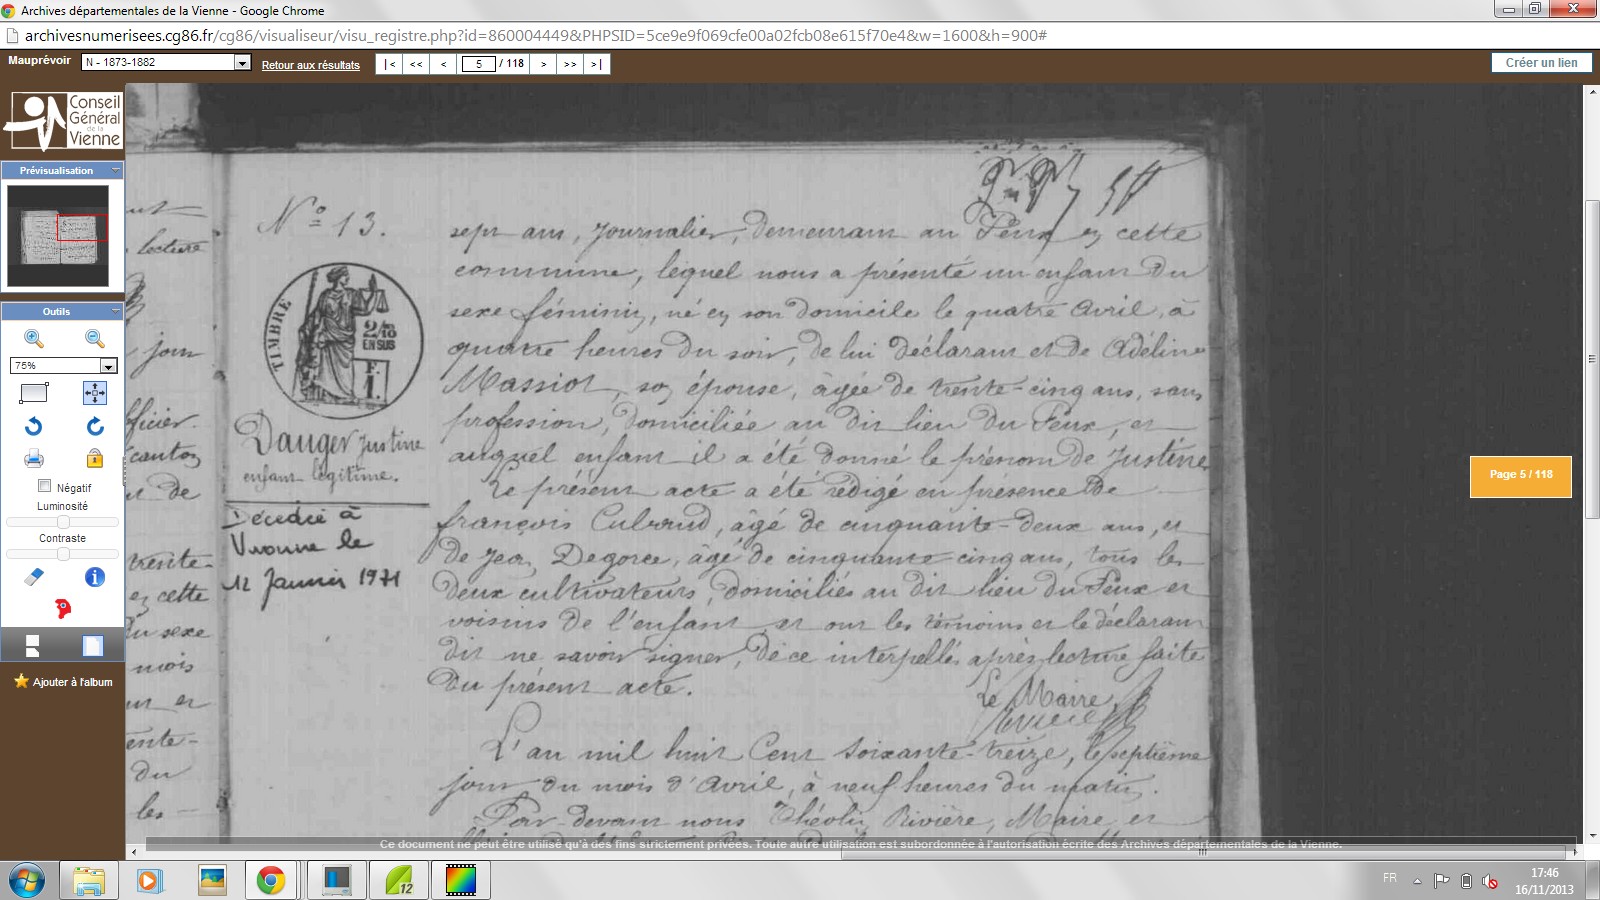 Archives départementales de la Vienne - Google Chrome
archivesnumerisees.cg86.fr/cg86/visualiseur/visu_registre.php?id=860004449&PHPSID=5ce9e9f069cfe00a02fcb08e615f70e4&w=1600&h=900#
Mauprévoir N - 1873-1882 Retour aux résultats |< << < 5 / 118 > >> >| Créer un lien
Conseil
Général
de la
Vienne
Prévisualisation
Outils
75%
Négatif
Luminosité
Contraste
Ajouter à l'album
lecture
jour
officier
canton
de
trente-
en cette
du sexe
mois
et
du
les
N° 13.
TIMBRE
2/10
EN SUS
F.
1.
Danger Justine
enfant légitime.
Décédée à
Vivonne le
12 Janvier 1971
sept ans, journalier, demeurant au Féux en cette
commune, lequel nous a présenté un enfant du
sexe féminin, né en son domicile le quatre avril, à
quatre heures du soir, de lui déclarant et de Adéline
Massiot, son épouse, âgée de trente-cinq ans, sans
profession, domiciliée au dit lieu du Féux, et
auquel enfant il a été donné le prénom de Justine
Le présent acte a été rédigé en présence de
françois Cubaud, âgé de cinquante-deux ans, et
de Jean Degorce, âgé de cinquante cinq ans, tous les
deux cultivateurs, domiciliés au dit lieu du Féux et
voisins de l'enfant et ont les témoins et le déclarant
dit ne savoir signer, de ce interpellés après lecture faite
du présent acte.
Le Maire,
L'an mil huit Cent soixante-treize, le septième
jour du mois d'avril, à neuf heures du matin.
Par-devant nous Théolin Rivière, Maire et
Page 5 / 118
Ce document ne peut être utilisé qu'à des fins strictement privées. Toute autre utilisation est subordonnée à l'autorisation écrite des Archives départementales de la Vienne.
12
FR
17:46
16/11/2013